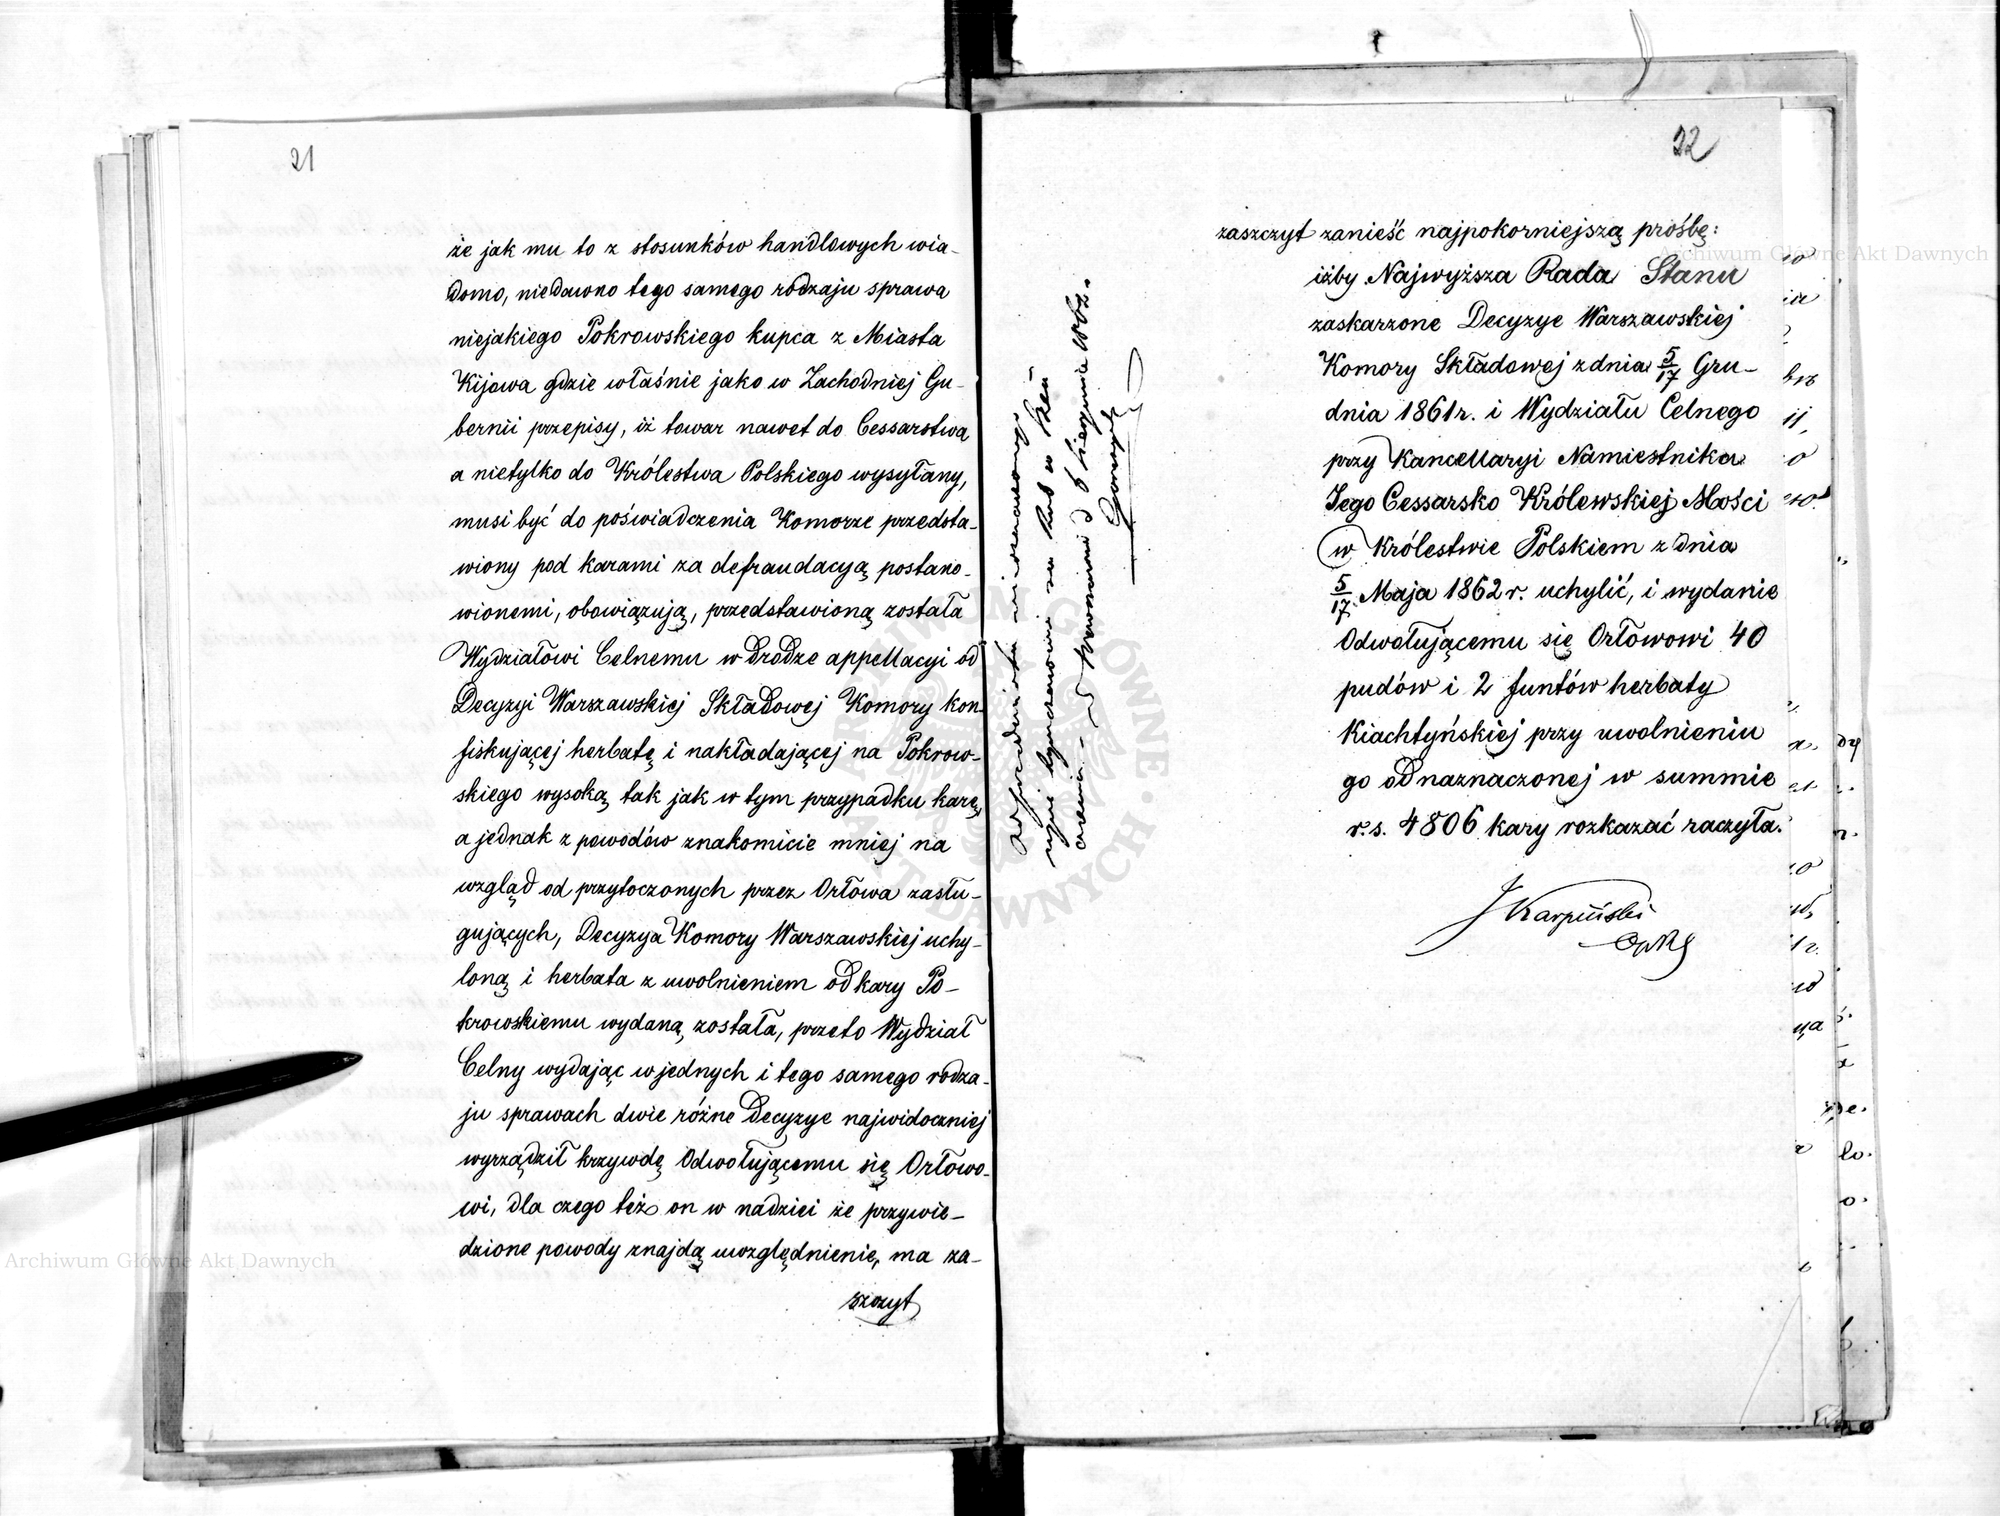 21
że jak mu to z stosunków handlowych wia-
domo, niedawno tego samego rodzaju sprawa
niejakiego Pokrowskiego kupca z Miasta
Kijowa gdzie właśnie jako w Zachodniej Gu-
bernii przepisy, iż towar nawet do Cessarstwa
a nietylko do Królestwa Polskiego wysyłany,
musi być do poświadczenia Komorze przedsta-
wiony pod karami za defraudacyą postano-
wionemi, obowiązują, przedstawioną została
Wydziałowi Celnemu w drodze appellacyi od
Decyzyi Warszawskiej Składowej Komory kon-
fiskującej herbatę i nakładającej na Pokrow-
skiego wysoką tak jak w tym przypadku karę,
a jednak z powodów znakomicie mniej na
wzgląd od przytoczonych przez Orłowa zasłu-
gujących, Decyzya Komory Warszawskiej uchy-
loną i herbata z uwolnieniem od kary Po-
krowskiemu wydaną została, przeto Wydział
Celny wydając w jednych i tego samego rodza-
ju sprawach dwie różne Decyzye najwidoczniej
wyrządził krzywdę Odwołującemu się Orłowo-
wi, dla czego też on w nadziei że przywie-
dzione powody znajdą uwzględnienie, ma za-
szczyt
22
zaszczyt zanieść najpokorniejszą prośbę:
iżby Najwyższa Rada Stanu
zaskarzone Decyzye Warszawskiej
Komory Składowej z dnia 5/17 Gru-
dnia 1861 r. i Wydziału Celnego
przy Kancellaryi Namiestnika
Jego Cessarsko Królewskiej Mości
w Królestwie Polskiem z dnia
5/17 Maja 1862 r. uchylić, i wydanie
Odwołującemu się Orłowowi 40
pudów i 2 funtów herbaty
Kiachtyńskiej przy uwolnieniu
go od naznaczonej w summie
r. s. 4806 kary rozkazać raczyła.
J Karpiński
Archiwum Główne Akt Dawnych
Archiwum Główne Akt Dawnych